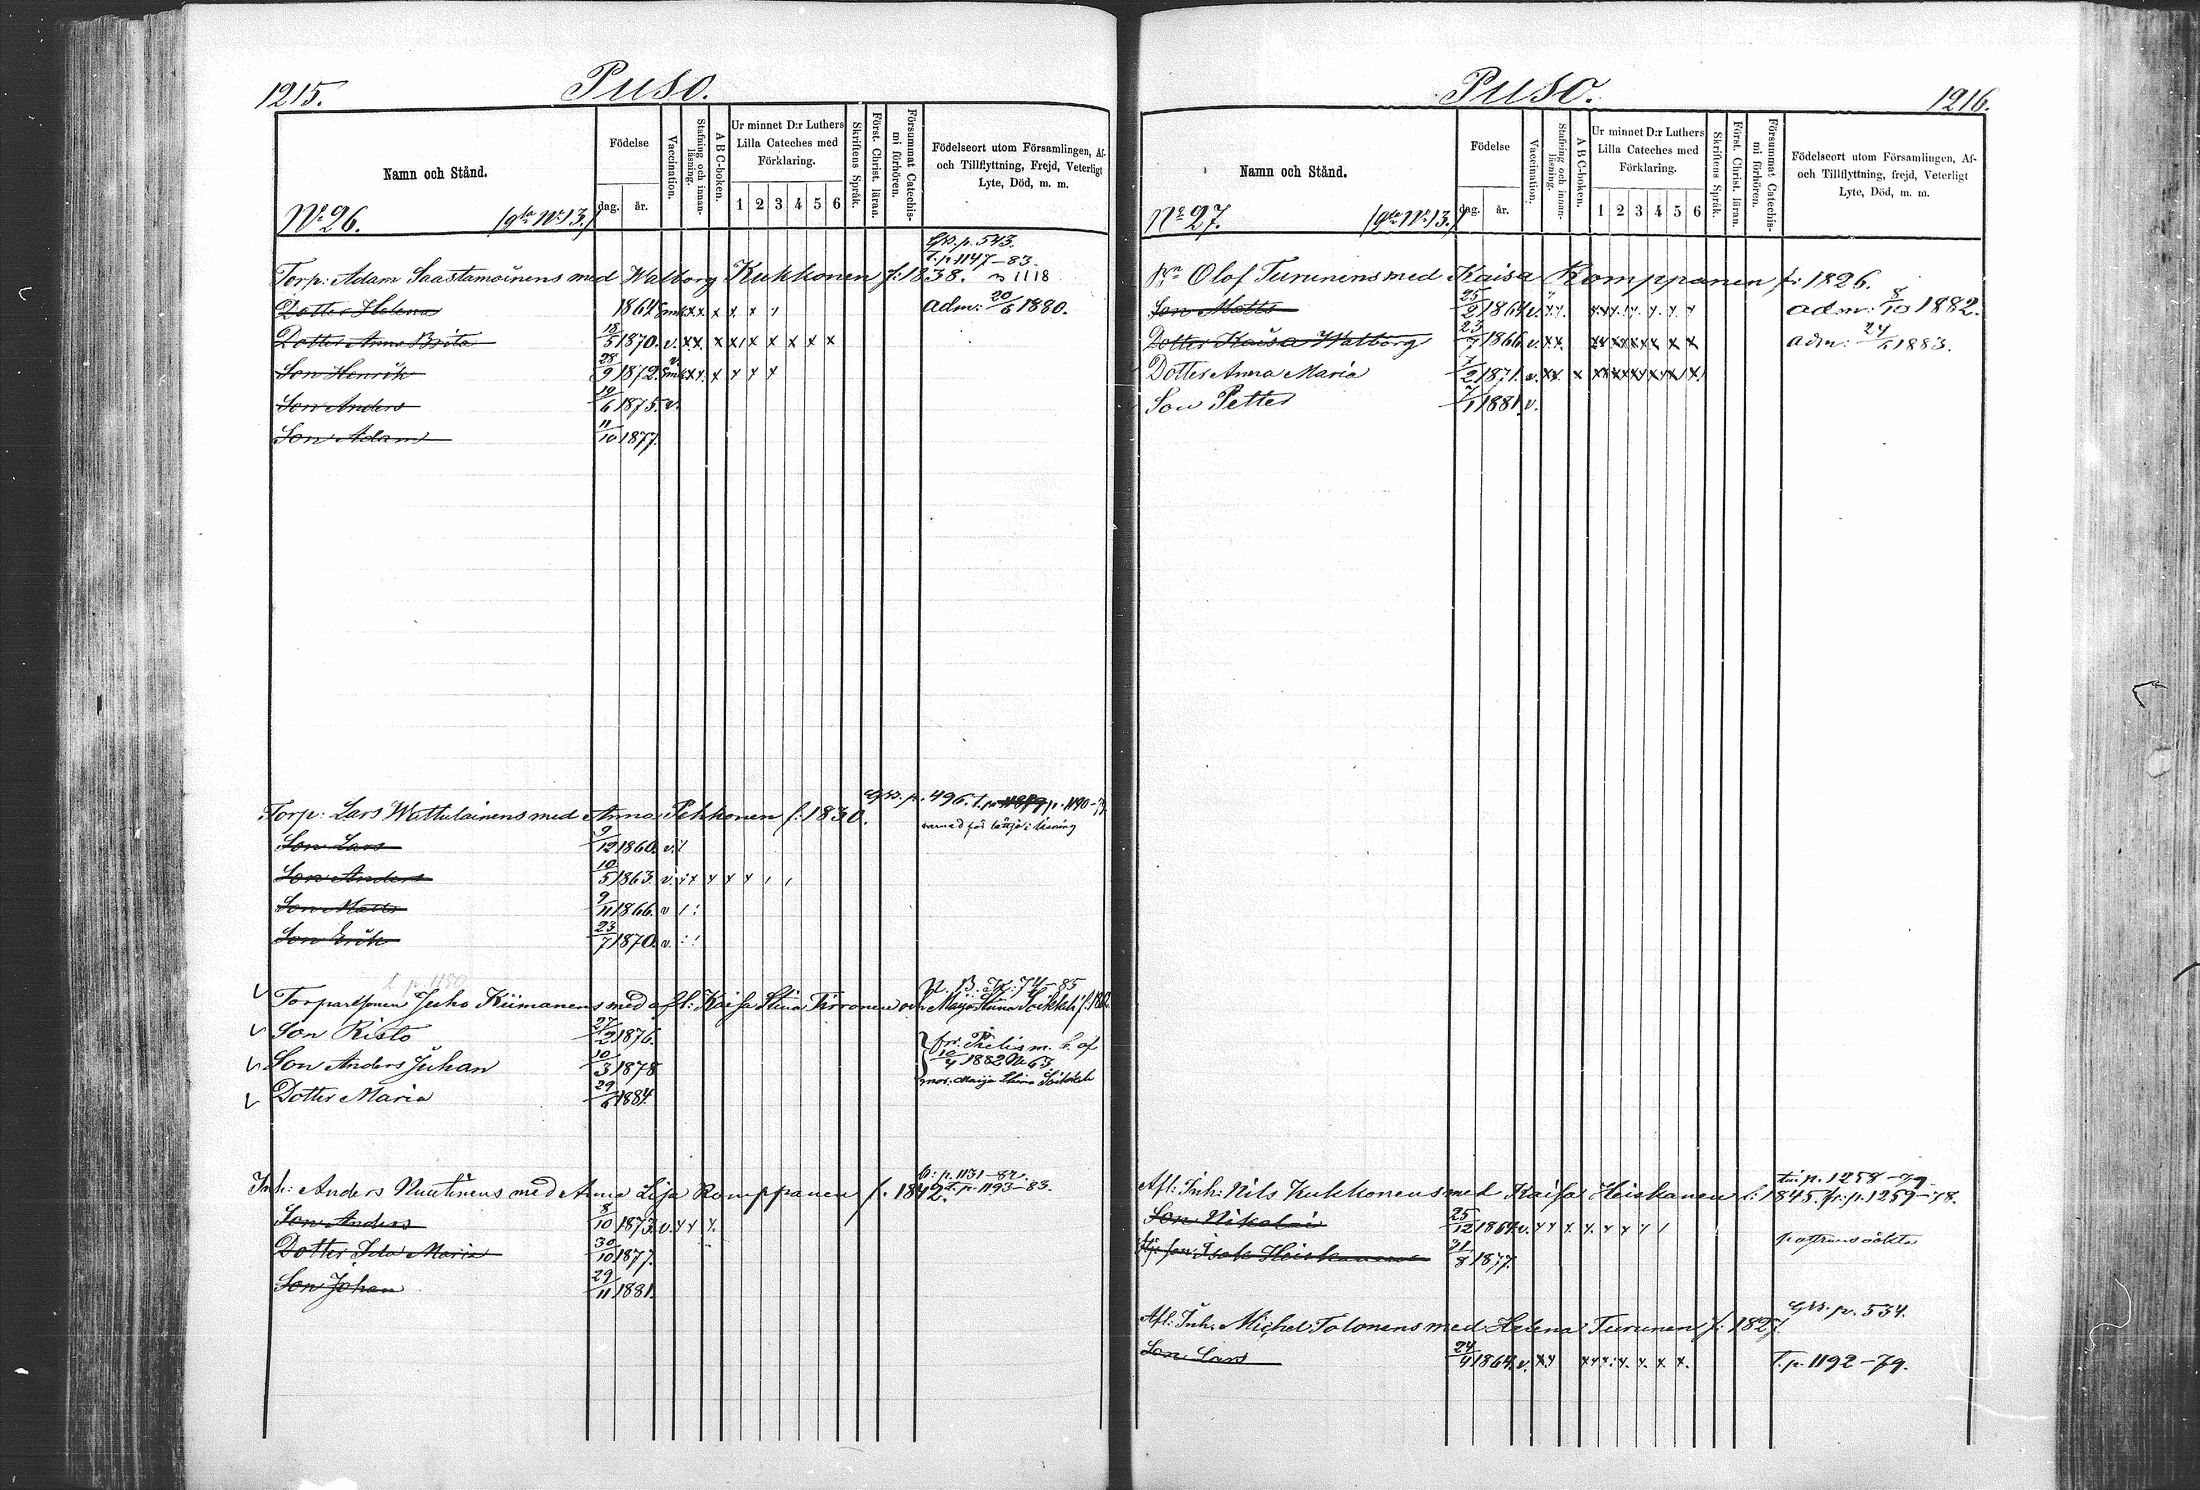 1215.
Puso.
Namn och Stånd.
Födelse
dag. år.
Vaccination.
Stafning och innanläsning.
A B C-boken.
Ur minnet D:r Luthers
Lilla Cateches med
Förklaring.
1 2 3 4 5 6
Skriftens Språk.
Först. Christ. läran.
Försummat Catechismi förhören.
Födelseort utom Församlingen, Af-
och Tillflyttning, Frejd, Veterligt
Lyte, Död, m. m.
No 26.
No 13.
p. 543.
T. p. 1147-83.
Torp: Adam Saastamoinens med Walborg Kukkonen f: 1838. 1118
Dotter Helena 1864 x x x x x adm: 20/6 1880.
Dotter Anna Brita 18/5 1870. v. x x x x x x x x x
Son Henrik 28/9 1872. x x x x x x
Son Anders 10/6 1875. v.
Son Adam 11/10 1877.
p. 496. p. 1140-79
Torp: Lars Wattulainens med Anna Pekkonen f: 1830.
Son Lars 9/12 1860. v.
Son Anders 10/5 1863. v. x x x x x
Son Matts 9/11 1866. v
Son Erik 23/7 1870. v.
74-85
Juho Kiimanens med afl: Kaisa Stina Tirronen och Maija Stina Soikkeli
Son Risto 27/2 1876.
Son Anders Juhan 10/3 1878
10/4 1882 No 63.
mor. Maija Stina Soikkeli
Dotter Maria 29/6 1884.
p. 1131-82.
Inh: Anders Nuutinens med Anna Lisa Romppanen f. 1842. T. p. 1193-83.
Son Anders 8/10 1873. v. x x x.
Dotter Ida Maria 30/10 1877.
Son Johan 29/11 1881.
Puso.
1216.
Namn och Stånd.
Födelse
dag. år.
Vaccination.
Stafning och innanläsning.
A B C-boken.
Ur minnet D:r Luthers
Lilla Cateches med
Förklaring.
1 2 3 4 5 6
Skriftens Språk.
Först. Christ. läran.
Försummat Catechismi förhören.
Födelseort utom Församlingen, Af-
och Tillflyttning, frejd, Veterligt
Lyte, Död, m. m.
No 27.
No 13.
Olof Turunens med Kaisa Romppanen f: 1826.
Son Matts 25/2 1864 v. x x. x x x x x x adm: 8/10 1882.
Dotter Kaisa Walborg 23/7 1866 v. x x. x x x x x x adm: 1883.
Dotter Anna Maria 7/2 1871. v. x x x x x x x x x
Son Petter 7/1 1881. v.
p. 1258-79.
Afl: Inh: Nils Kukkonens med Kaisa Heiskanen f: 1845. fr: p. 1259-78.
Son Nikolai 25/12 1864. v. x x x x x x x
son: Isak Heiskanen 21/8 1877.
p. 534.
Afl: Inh: Michel Tolonens med Helena Turunen f: 1827.
Son Lars 24/4 1864. v. x x x x x x x x x. T. p. 1192-79.